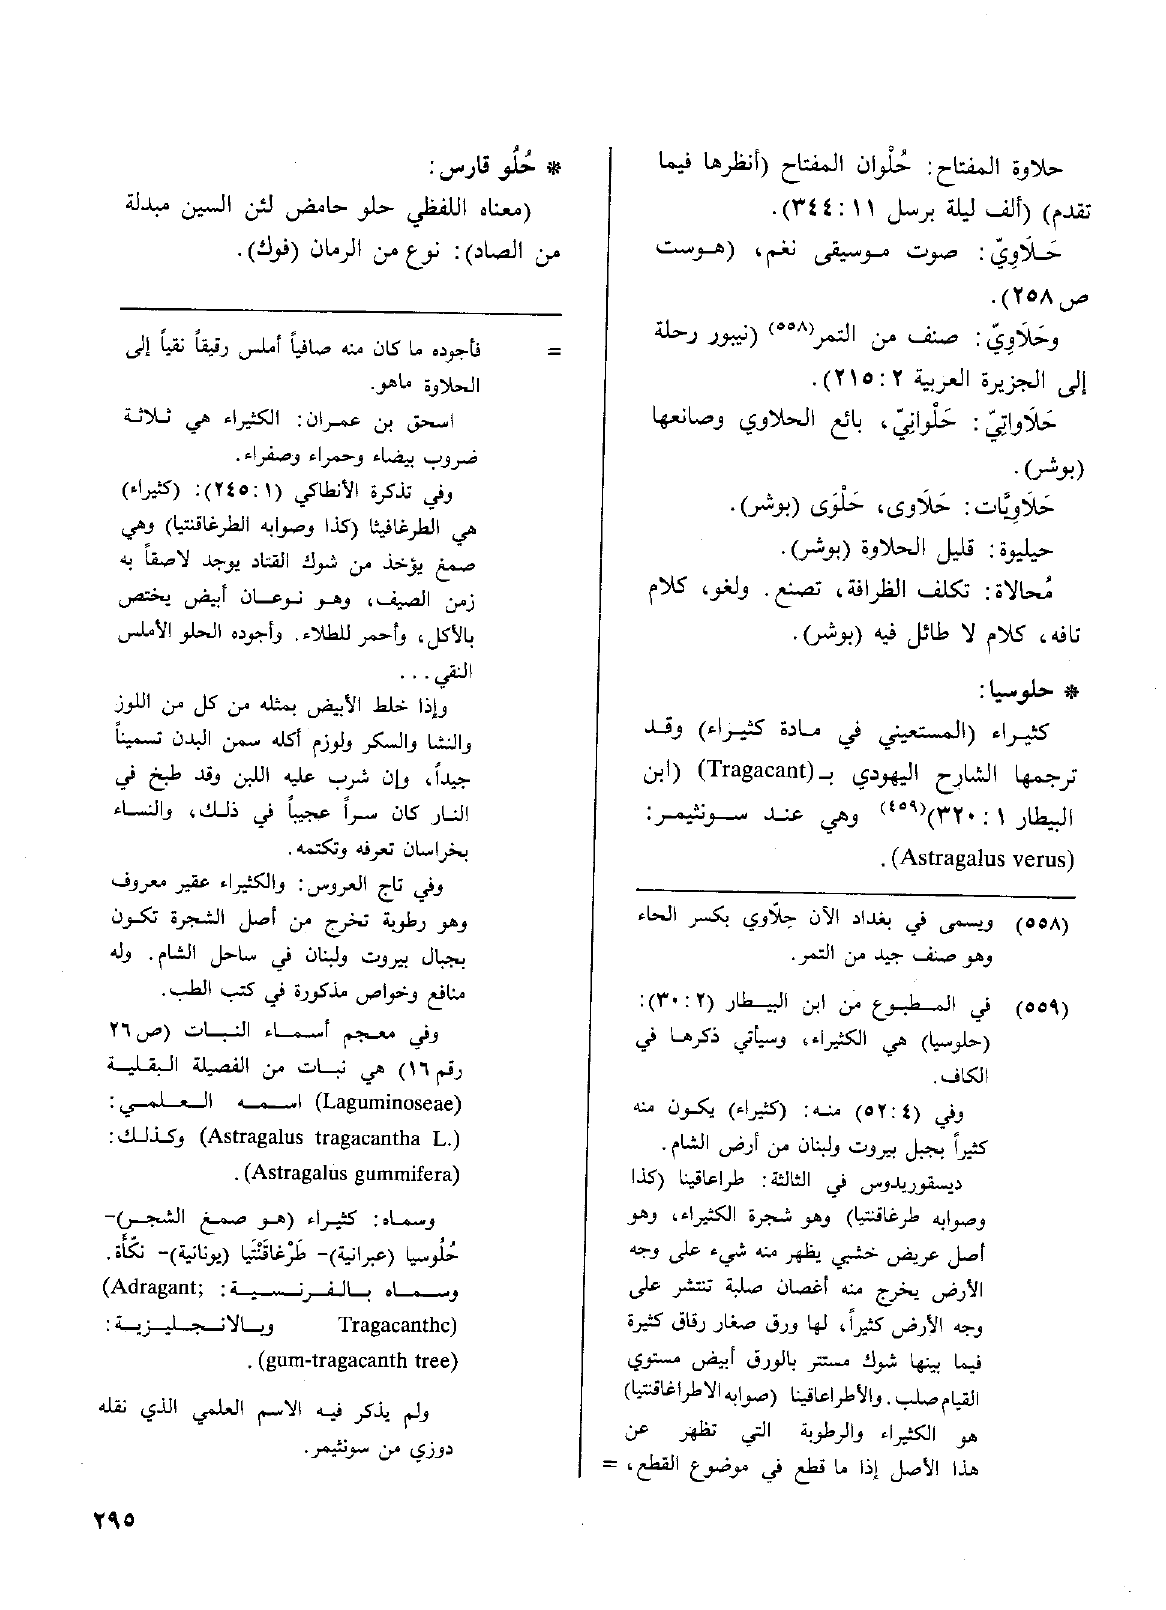 حلاوة المفتاح: حُلْوان المفتاح (أنظرها فيما
تقدم) (ألف ليلة برسل ١١: ٣٤٤).
حَلَاوِيّ: صوت موسيقى نغم، (هوست
ص٢٥٨).
وحَلَاوِيّ: صنف من التمر(٥٥٨) (نيبور رحلة
إلى الجزيرة العربية ٢: ٢١٥).
حَلَاواتِيّ: حَلْوانِيّ، بائع الحلاوي وصانعها
(بوشر).
حَلَاوِيَّات: حَلَاوى، حَلْوَى (بوشر).
حيليوة: قليل الحلاوة (بوشر).
مُحالاة: تكلف الظرافة، تصنع. ولغو، كلام
تافه، كلام لا طائل فيه (بوشر).
* حلوسيا:
كثيراء (المستعيني في مادة كثيراء) وقد
ترجمها الشارح اليهودي بـ (Tragacant) (ابن
البيطار ١: ٣٢٠)(٤٥٩) وهي عند سونثيمر:
(Astragalus verus).
(٥٥٨) ويسمى في بغداد الآن حِلّاوي بكسر الحاء
وهو صنف جيد من التمر.
(٥٥٩) في المطبوع من ابن البيطار (٢: ٣٠):
(حلوسيا) هي الكثيراء، وسيأتي ذكرها في
الكاف.
وفي (٤: ٥٢) منه: (كثيراء) يكون منه
كثيراً بجبل بيروت ولبنان من أرض الشام.
ديسقوريدوس في الثالثة: طراعاقينا (كذا
وصوابه طرغاقنتيا) وهو شجرة الكثيراء، وهو
أصل عريض خشبي يظهر منه شيء على وجه
الأرض يخرج منه أغصان صلبة تنتشر على
وجه الأرض كثيراً، لها ورق صغار رقاق كثيرة
فيما بينها شوك مستتر بالورق أبيض مستوي
القيام صلب. والأطراعاقينا (صوابه الاطراغاقنتيا)
هو الكثيراء والرطوبة التي تظهر عن
هذا الأصل إذا ما قطع في موضوع القطع، =
* حُلُو قارس:
(معناه اللفظي حلو حامض لئن السين مبدلة
من الصاد): نوع من الرمان (فوك).
= فأجوده ما كان منه صافياً أملس رقيقاً نقياً إلى
الحلاوة ماهو.
اسحق بن عمران: الكثيراء هي ثلاثة
ضروب بيضاء وحمراء وصفراء.
وفي تذكرة الأنطاكي (١: ٢٤٥): (كثيراء)
هي الطرغافيثا (كذا وصوابه الطرغاقنتيا) وهي
صمغ يؤخذ من شوك القتاد يوجد لاصقاً به
زمن الصيف، وهو نوعان أبيض يختص
بالأكل، وأحمر للطلاء. وأجوده الحلو الأملس
النقي...
وإذا خلط الأبيض بمثله من كل من اللوز
والنشا والسكر ولوزم أكله سمن البدن تسميناً
جيداً، وإن شرب عليه اللبن وقد طبخ في
النار كان سراً عجيباً في ذلك، والنساء
بخراسان تعرفه وتكتمه.
وفي تاج العروس: والكثيراء عقير معروف
وهو رطوبة تخرج من أصل الشجرة تكون
بجبال بيروت ولبنان في ساحل الشام. وله
منافع وخواص مذكورة في كتب الطب.
وفي معجم أسماء النبات (ص٢٦
رقم١٦) هي نبات من الفصيلة البقلية
(Laguminoseae) اسمه العلمي:
(Astragalus tragacantha L.) وكذلك:
(Astragalus gummifera).
وسماه: كثيراء (هو صمغ الشجر)-
حُلُوسيا (عبرانية)- طَرْغاقَنْتَيا (يونانية)- نَكْأَة.
وسماه بالفرنسية: (Adragant;
Tragacanthc) وبالانجليزية:
(gum-tragacanth tree).
ولم يذكر فيه الاسم العلمي الذي نقله
دوزي من سونثيمر.
٢٩٥